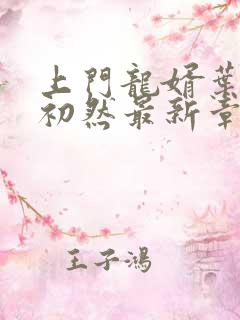 上門龍婿葉
初然最新章
王子鴻